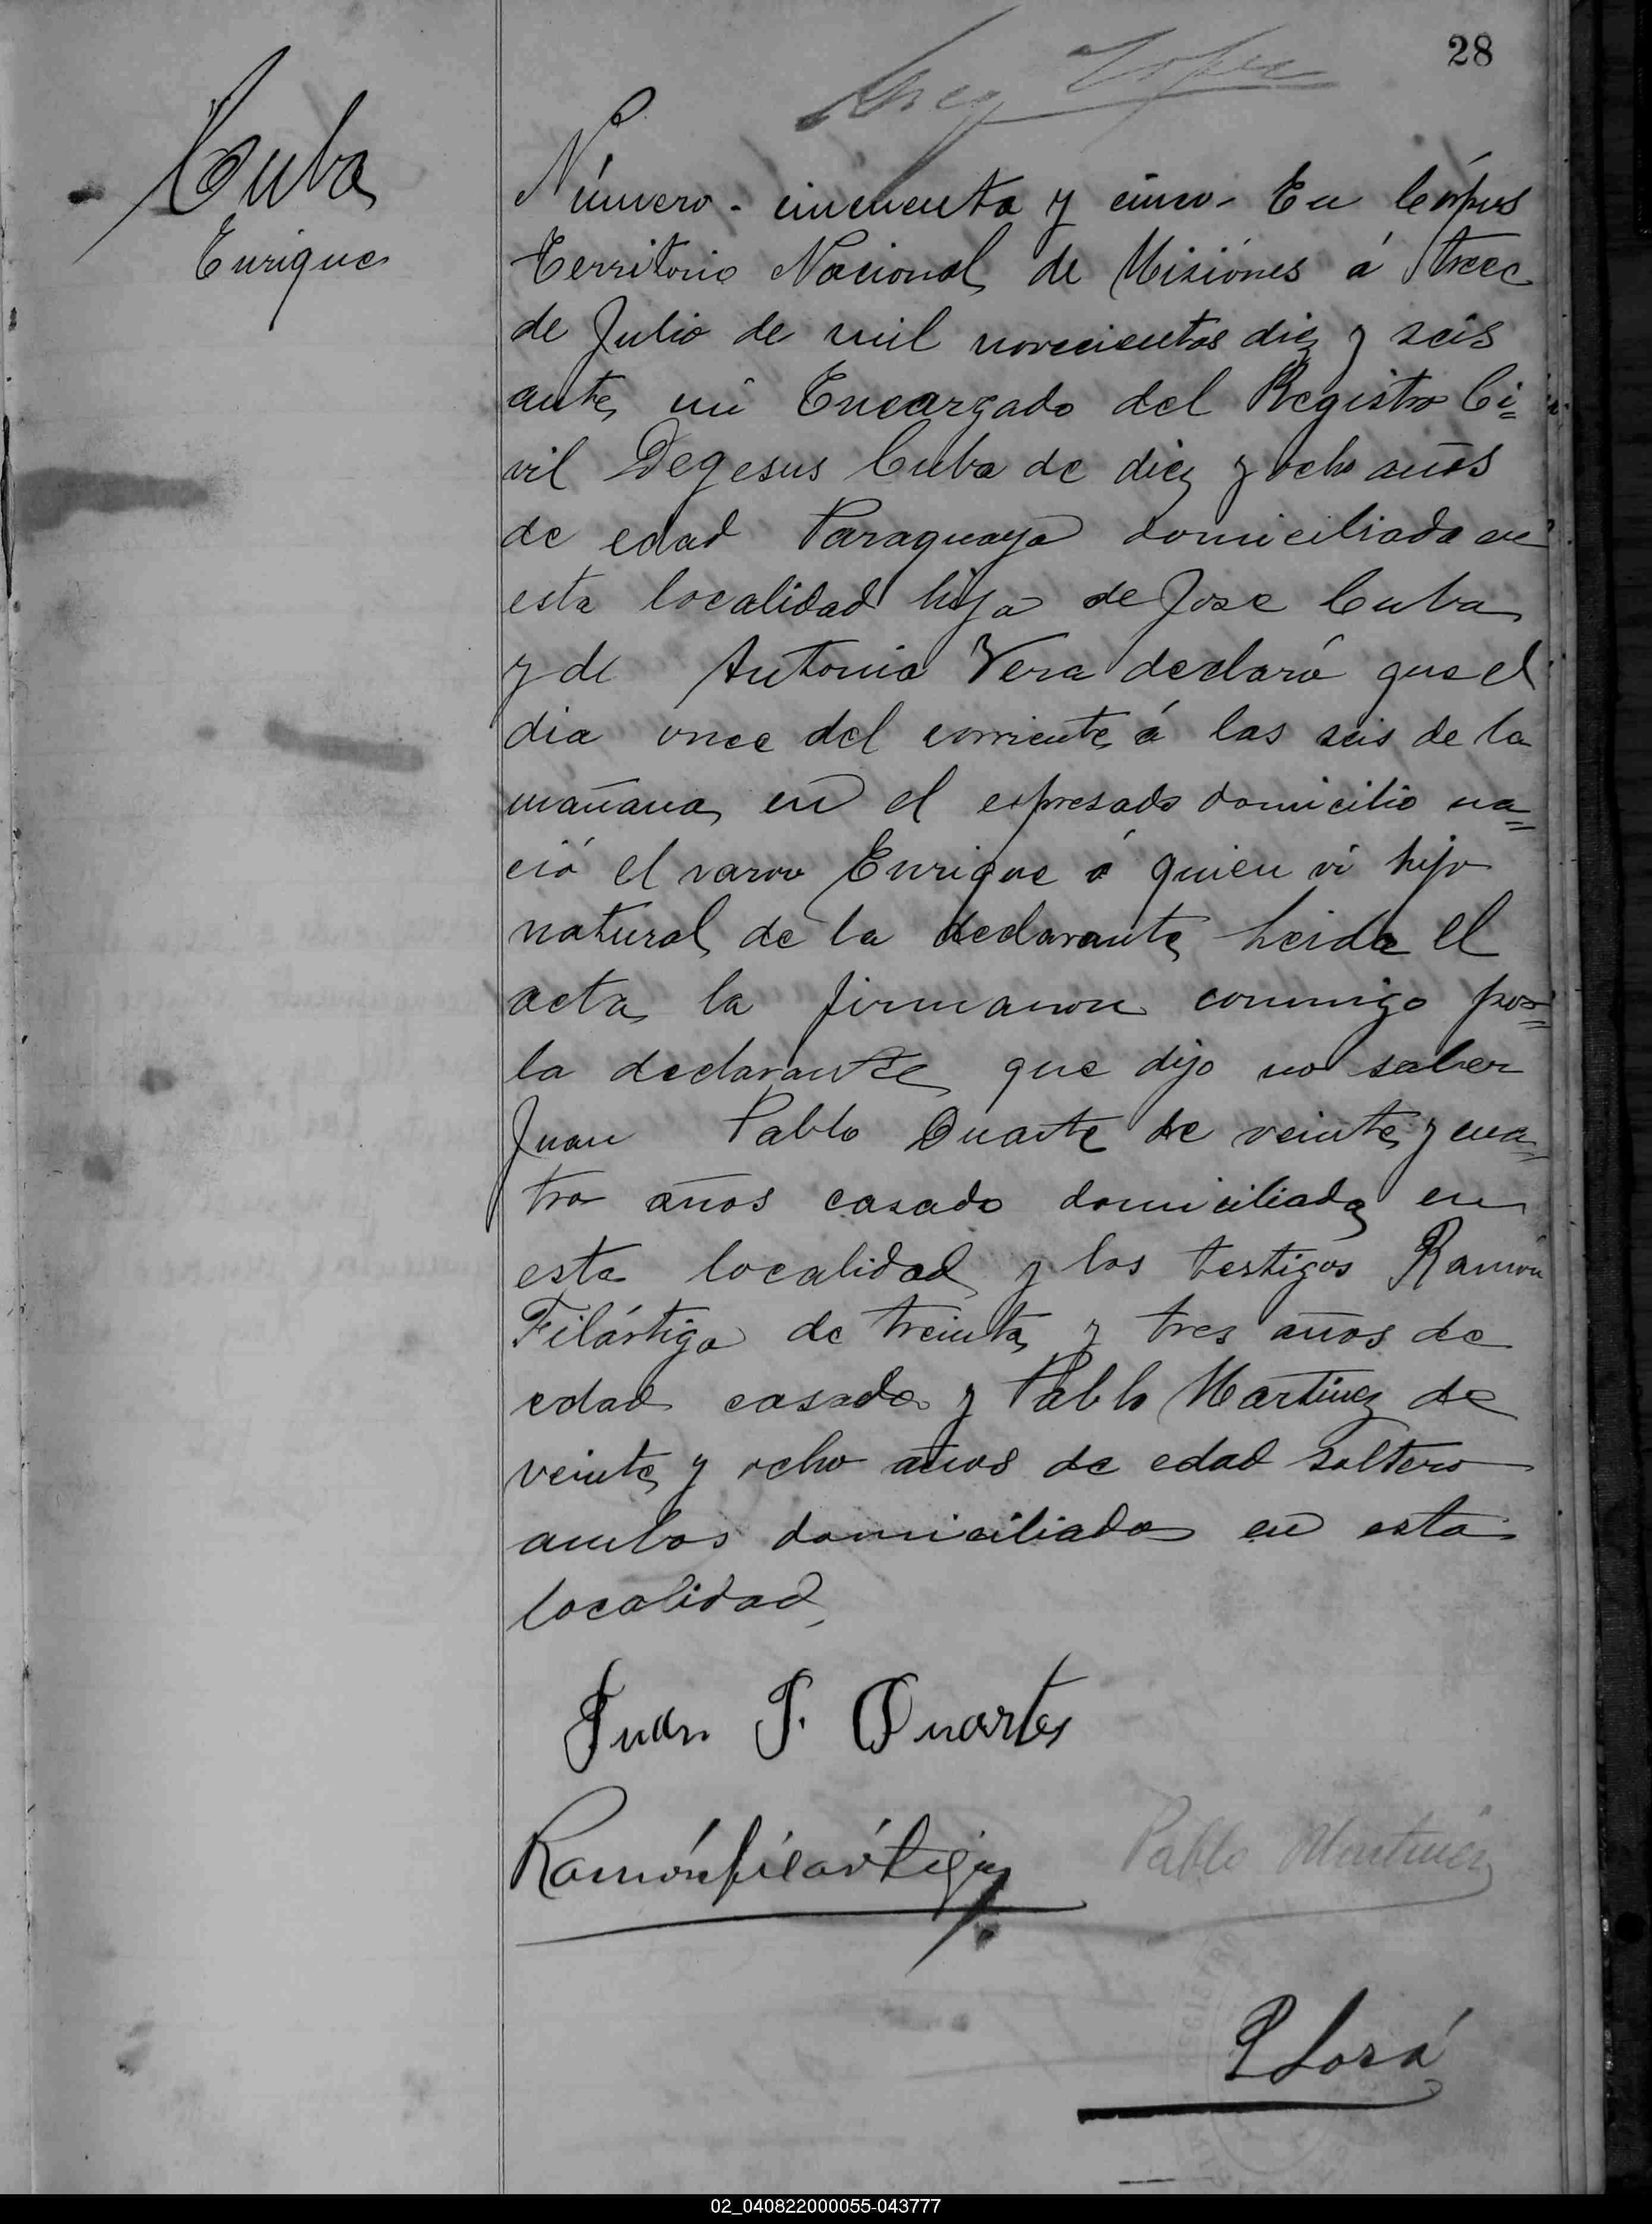 28
Cuba
Enrique
Número - cincuenta y cinco - En Córpus
Territorio Nacional de Misiónes á trece
de Julio de mil novecientos diez y seis
ante mi Encargado del Registro Ci=
vil Degesus Cuba de diez y ocho años
de edad Paraguaya domiciliada en
esta localidad hija de Jose Cuba
y de Antonia Vera declaró que el
dia once del corriente á las seis de la
mañana en el espresado domicilio na=
ció el varon Enrique á quien vi hijo
natural de la declarante Leida el
acta la firmaron conmigo por=
la declarante que dijo no saber
Juan Pablo Duarte de veinte y cua=
tro años casado domiciliado en
esta localidad y los testigos Ramón
Filártiga de treinta y tres años de
edad casado y Pablo Martinez de
veinte y ocho años de edad soltero
ambos domiciliados en esta
localidad
Juan P. Duartes
Ramón filártiga
Pablo Martinez
02_040822000055-043777